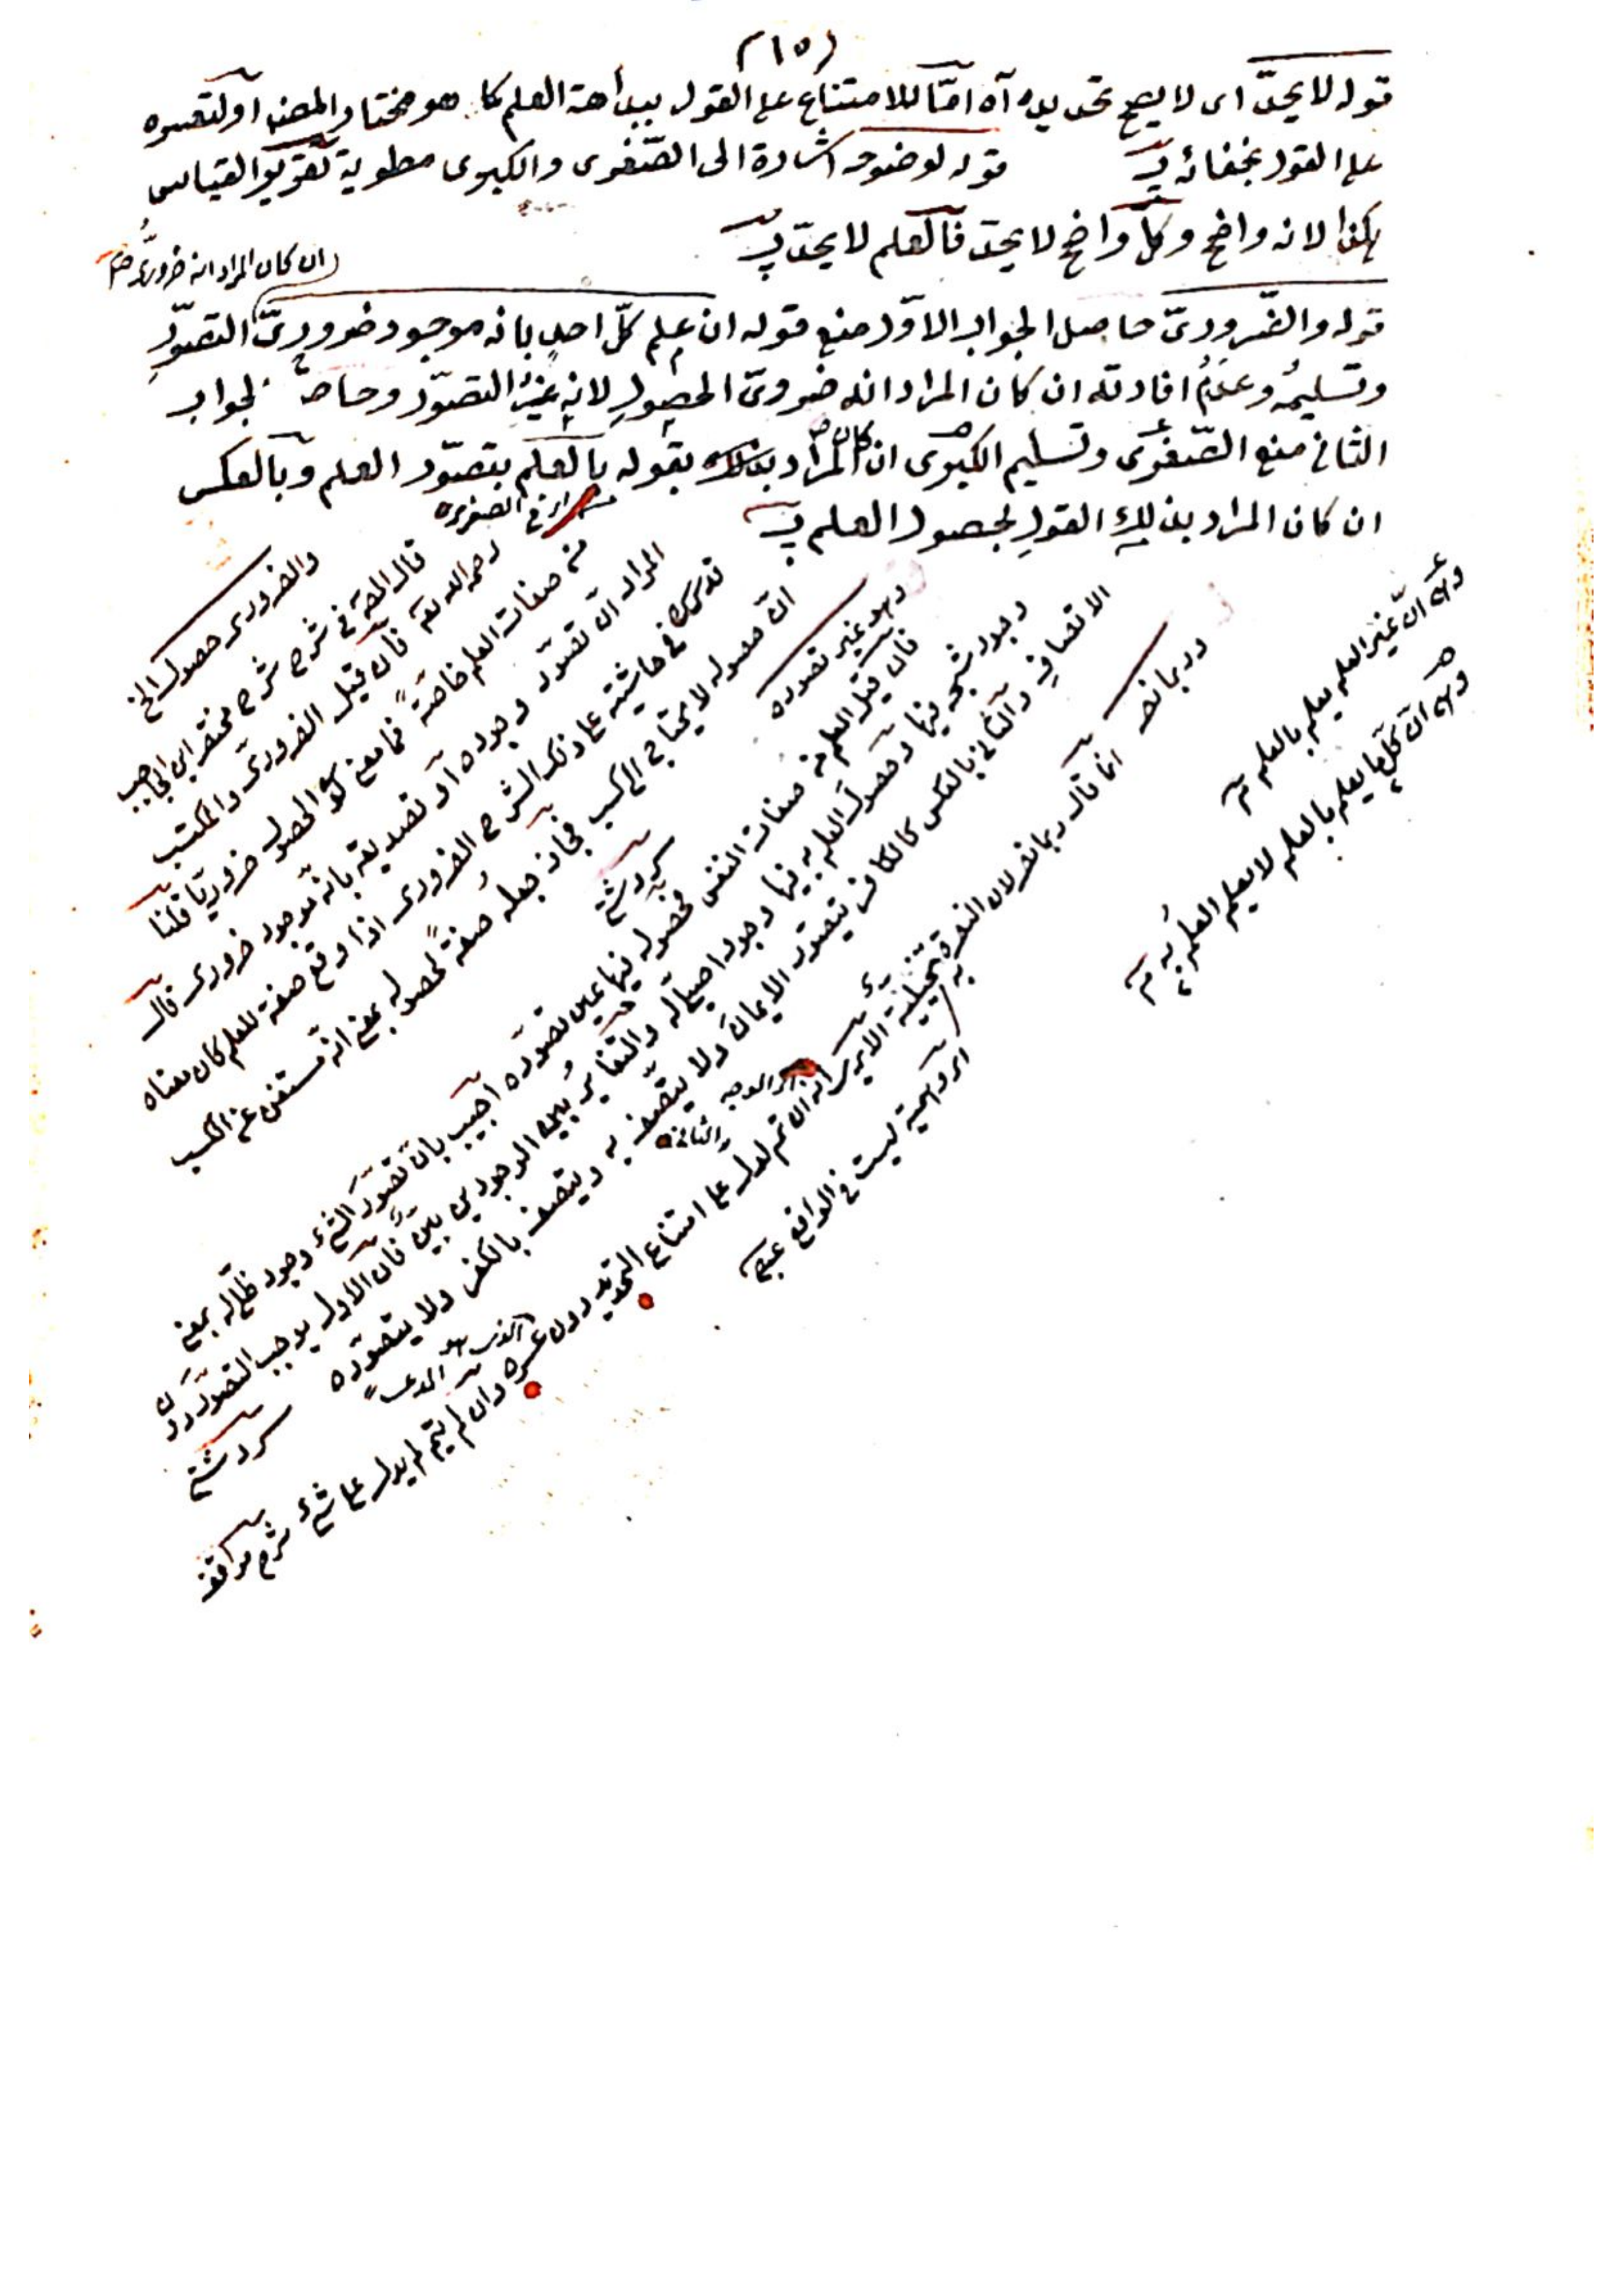 (١٥)
قوله لا يحدّ اى لا يصح تحديده آه امّا للامتناع على القول ببداهة العلم كما هو مختار المصنف او لتعسره
على القول بخفائه
قوله لوضوحه اشارة الى الصّغرى والكبرى مطوية تقرير القياس
هكذا لانه واضح وكلّ واضح لا يحدّ فالعلم لا يحدّ
ان كان المراد انه ضرورىّ
قوله والضّرورىّ حاصل الجواب الاوّل منع قوله ان علم كلّ احدٍ بانه موجود ضرورىّ التصوّر
وتسليمُه وعدَمُ افادته ان كان المراد انه ضرورىّ الحصولِ لانه غيرُ التصوّر وحاصل الجواب
الثانى منع الصّغرى وتسليم الكبرى ان كان المراد بقوله بالعلم بتصوّر العلم وبالعكس
ان كان المراد بذلك القولِ لحصول العلم
والضرورى حصوله الخ
قال المصـ فى شرح شرح مختصر ابن الحاجب
رحمه الله فان قيل الضرورى والمكتسب
من صفات العلم خاصّةً فما معنى كون الحصول ضروريّا قلنا
المراد انّ تصوّر وجوده او تصديقه بانّه موجود ضرورى قال
قدس سره فى حاشيته على ذلك الشرح الضرورى اذا وقع صفة للعلم كان معناه
انّ حصوله لا يحتاج الى كسب فجاز جعله صفةً لحصوله بمعنى انّه مستغنٍ عن الكسب
وهو غير تصوره
فان قيل العلم من صفات النفس فحصوله فيها عين تصوّره اجيب بانّ تصوّر الشئ وجود ظلّى له بمعنى
وجود شبحه فيها وحصول العلم به فيها وجود اصيل له والتغاير بين الوجودين بيّن فانّ الاول يوجب التصوّر دون
الاتصاف والثانى بالعكس كالكافر يتصور الايمان ولا يتّصف به ويتصف بالكفر ولا يتصوّره
در بما نصـ
انما قال ربما نصر لان
ان تم لدل على امتناع التحديد دون عسره وان لم يتم لم يدل على شئ شرح مواقف
اى وهمية ليست فى الواقع
وهى انّ غير العلم يعلم بالعلم
وهى انّ كلّ ما يعلم بالعلم لا يعلم العلمُ به